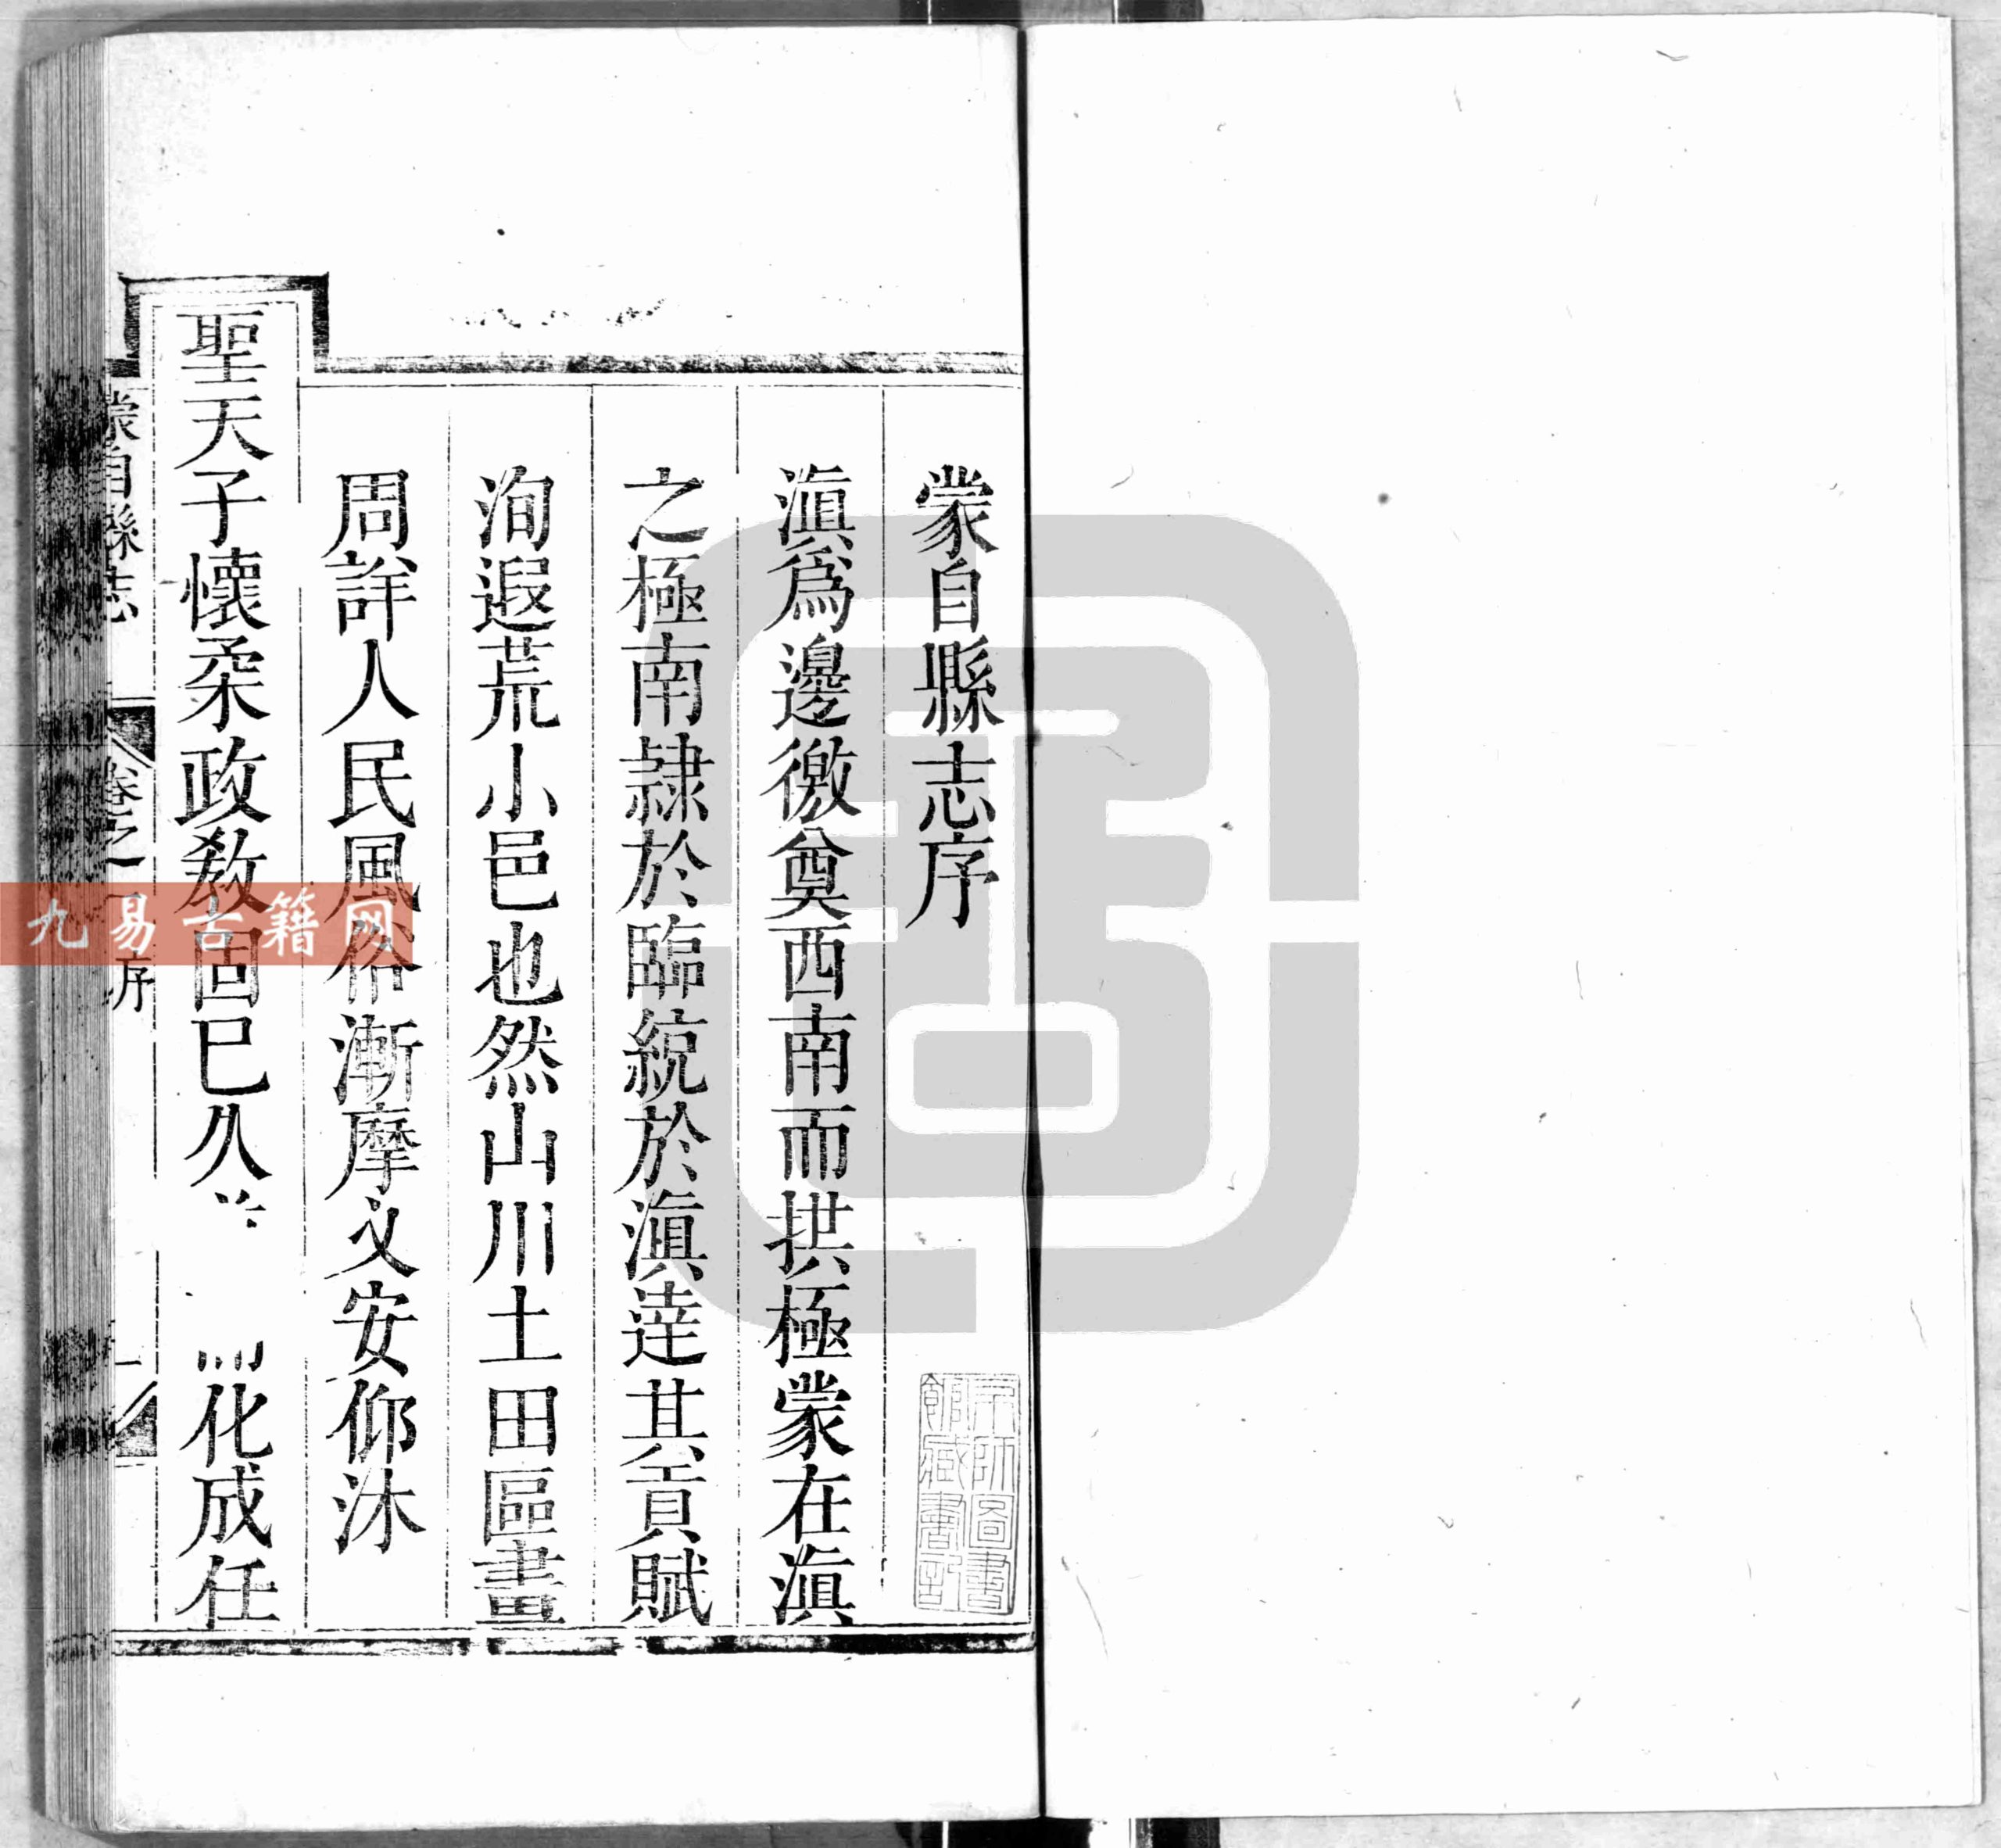 蒙自縣志序
滇爲邊徼奠西南而拱極蒙在滇
之極南隷於臨統於滇逹其貢賦
洵遐荒小邑也然山川土田區畫
周詳人民風俗漸摩乂安仰沐
聖天子懷柔政教固已久
化成任
蒙自縣志
卷之一
序
一
京師圖書
館藏書記
九易古籍网